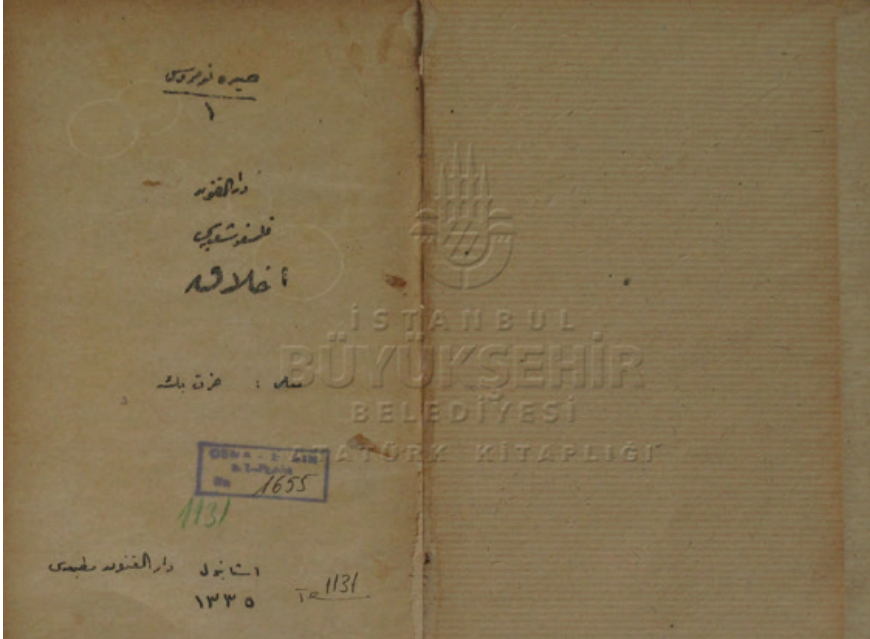 صيره نومروسى
١
دار الفنون
فلسفه شعبه سى
اخلاق
معلم : عزت بك
OSMAN ERGİN
KİTAPLARI
No 1655
1131
استانبول دار الفنون مطبعه سى
١٣٣٥
1131
İSTANBUL
BÜYÜKŞEHİR
BELEDİYESİ
ATATÜRK KİTAPLIĞI